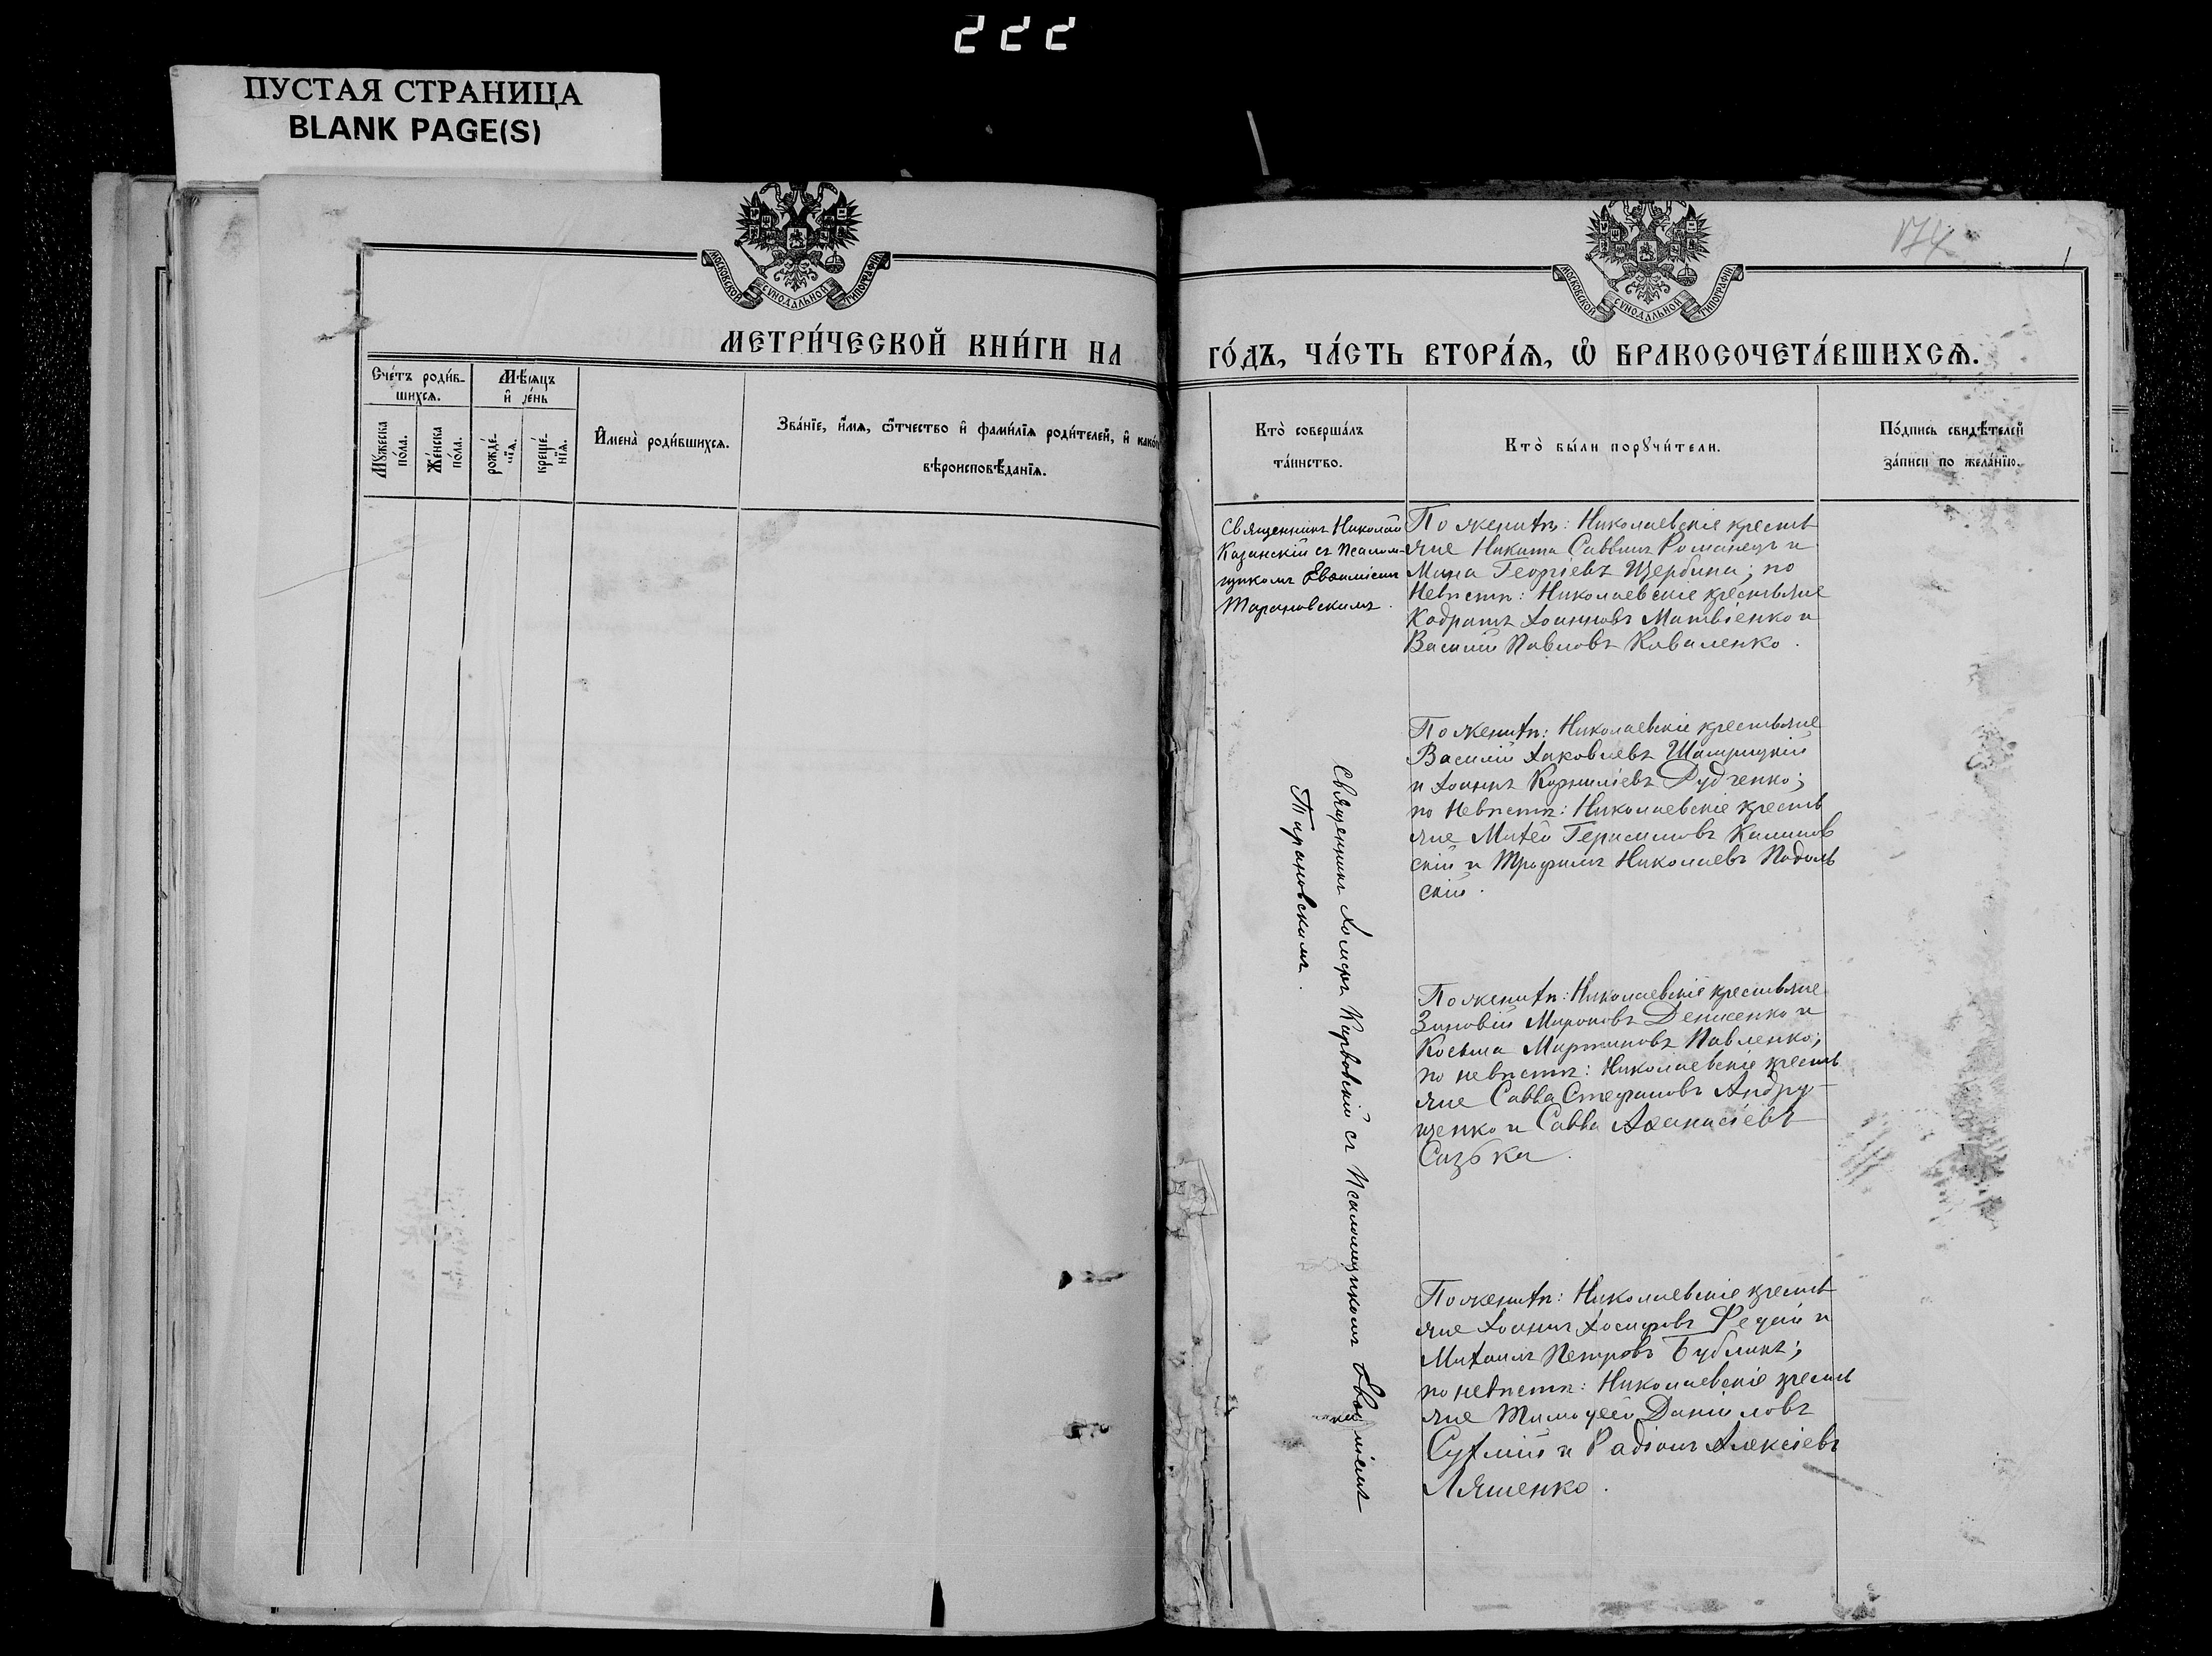 222
ПУСТАЯ СТРАНИЦА
BLANK PAGE(S)
МОСКОВСКОЙ СѴНОДАЛЬНОЙ ТИПОГРАФІИ
МЕТРИ́ЧЕСКОЙ КНИ́ГИ НА
Сче́тъ роди́в-
шихсѧ.
Мѣ́сѧцъ
и҆ де́нь
Мꙋ́жеска
по́ла.
Же́нска
по́ла.
рожде́-
нїѧ.
креще́-
нїѧ.
И҆мена̀ роди́вшихсѧ.
Зва́нїе, и҆́мѧ, ѻ҆́тчество и҆ фами́лїѧ роди́телей, и҆ како́
вѣроисповѣ́данїѧ.
174
МОСКОВСКОЙ СѴНОДАЛЬНОЙ ТИПОГРАФІИ
ГО́ДЪ, ЧА́СТЬ ВТОРА́Ѧ, Ѡ҆ БРАКОСОЧЕТА́ВШИХСѦ.
Кто̀ соверша́лъ
та́инство.
Кто̀ бы́ли порꙋчи́тели.
По́дпись свидѣ́телей
за́писи по жела́нїю.
Священникъ Николай
Казанскій съ Псалом-
щикомъ Евѳиміемъ
Тарановскимъ.
По женихѣ: Николаевскіе кресть
яне Никита Саввинъ Романецъ и
Мина Георгіевъ Щербина; по
Невѣстѣ: Николаевскіе крестьяне
Кодратъ Іоанновъ Матвіенко и
Василій Павловъ Коваленко.
Священникъ Іосифъ Карвовскій съ Псаломщикомъ Евѳиміемъ
Тарановскимъ.
По женихѣ: Николаевскіе крестьяне
Василій Іаковлевъ
и Іоаннъ Корниліевъ Рудченко;
по Невѣстѣ: Николаевскіе кресть
яне Матѳей Герасимовъ Калинов
скій и Трофимъ Николаевъ Подоль
скій.
По женихѣ: Николаевскіе крестьяне
Зиновій Мироновъ Денисенко и
Косьма Мартиновъ Павленко;
по невѣстѣ: Николаевскіе кресть
яне Савва Стефановъ Андру
щенко и Савва Аѳанасіевъ
Сизька.
По женихѣ: Николаевскіе кресть
яне Іоаннъ Іосифовъ и
Михаилъ Петровъ Бубликъ;
по невѣстѣ: Николаевскіе кресть
яне Тимофей Даниловъ
Сухлій и Радіонъ Алексіевъ
Ляшенко.